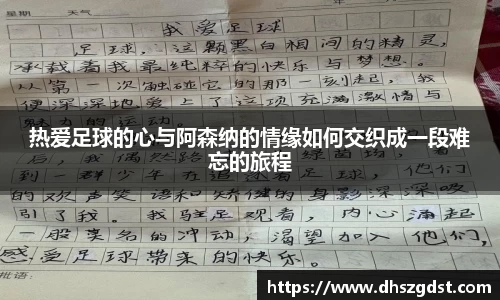 星期 天气
我爱足球
足球，这颗黑白相间的精灵，
承载着我最纯粹的快乐与梦想。
从第一次触碰它的那一刻起，我
便深深地爱上了这项充满激情与
魅力的运动。
热爱足球的心与阿森纳的情缘如何交织成一段难
忘的旅程
到一群少年在追逐着足球，他们
的欢声笑语和矫健的身影深深吸
引了我。我驻足观看，内心涌起
一股莫名的冲动，渴望加入他们，
感受足球带来的快乐。
批语：
https://www.dhszgdst.com